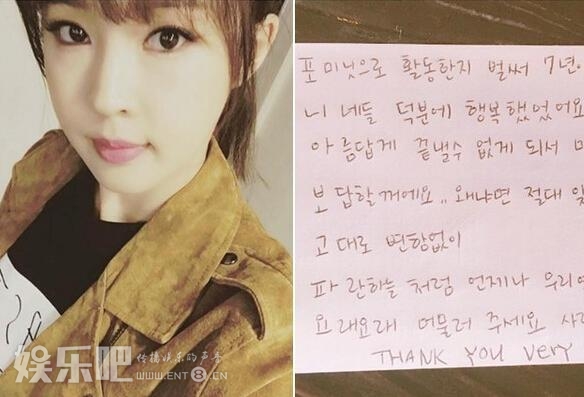 포미닛으로 활동한지 벌써 7년이
니 네들 덕분에 행복했었어요
아름답게 끝낼수 없게 되서 미
보답할꺼에요.. 왜냐면 절대 잊
고대로 변함없이
파란하늘 처럼 언제나 우리
요래요래 머물러 주세요 사랑
THANK YOU VERY
娱乐吧 传播娱乐的声音
WWW.ENT8.CN